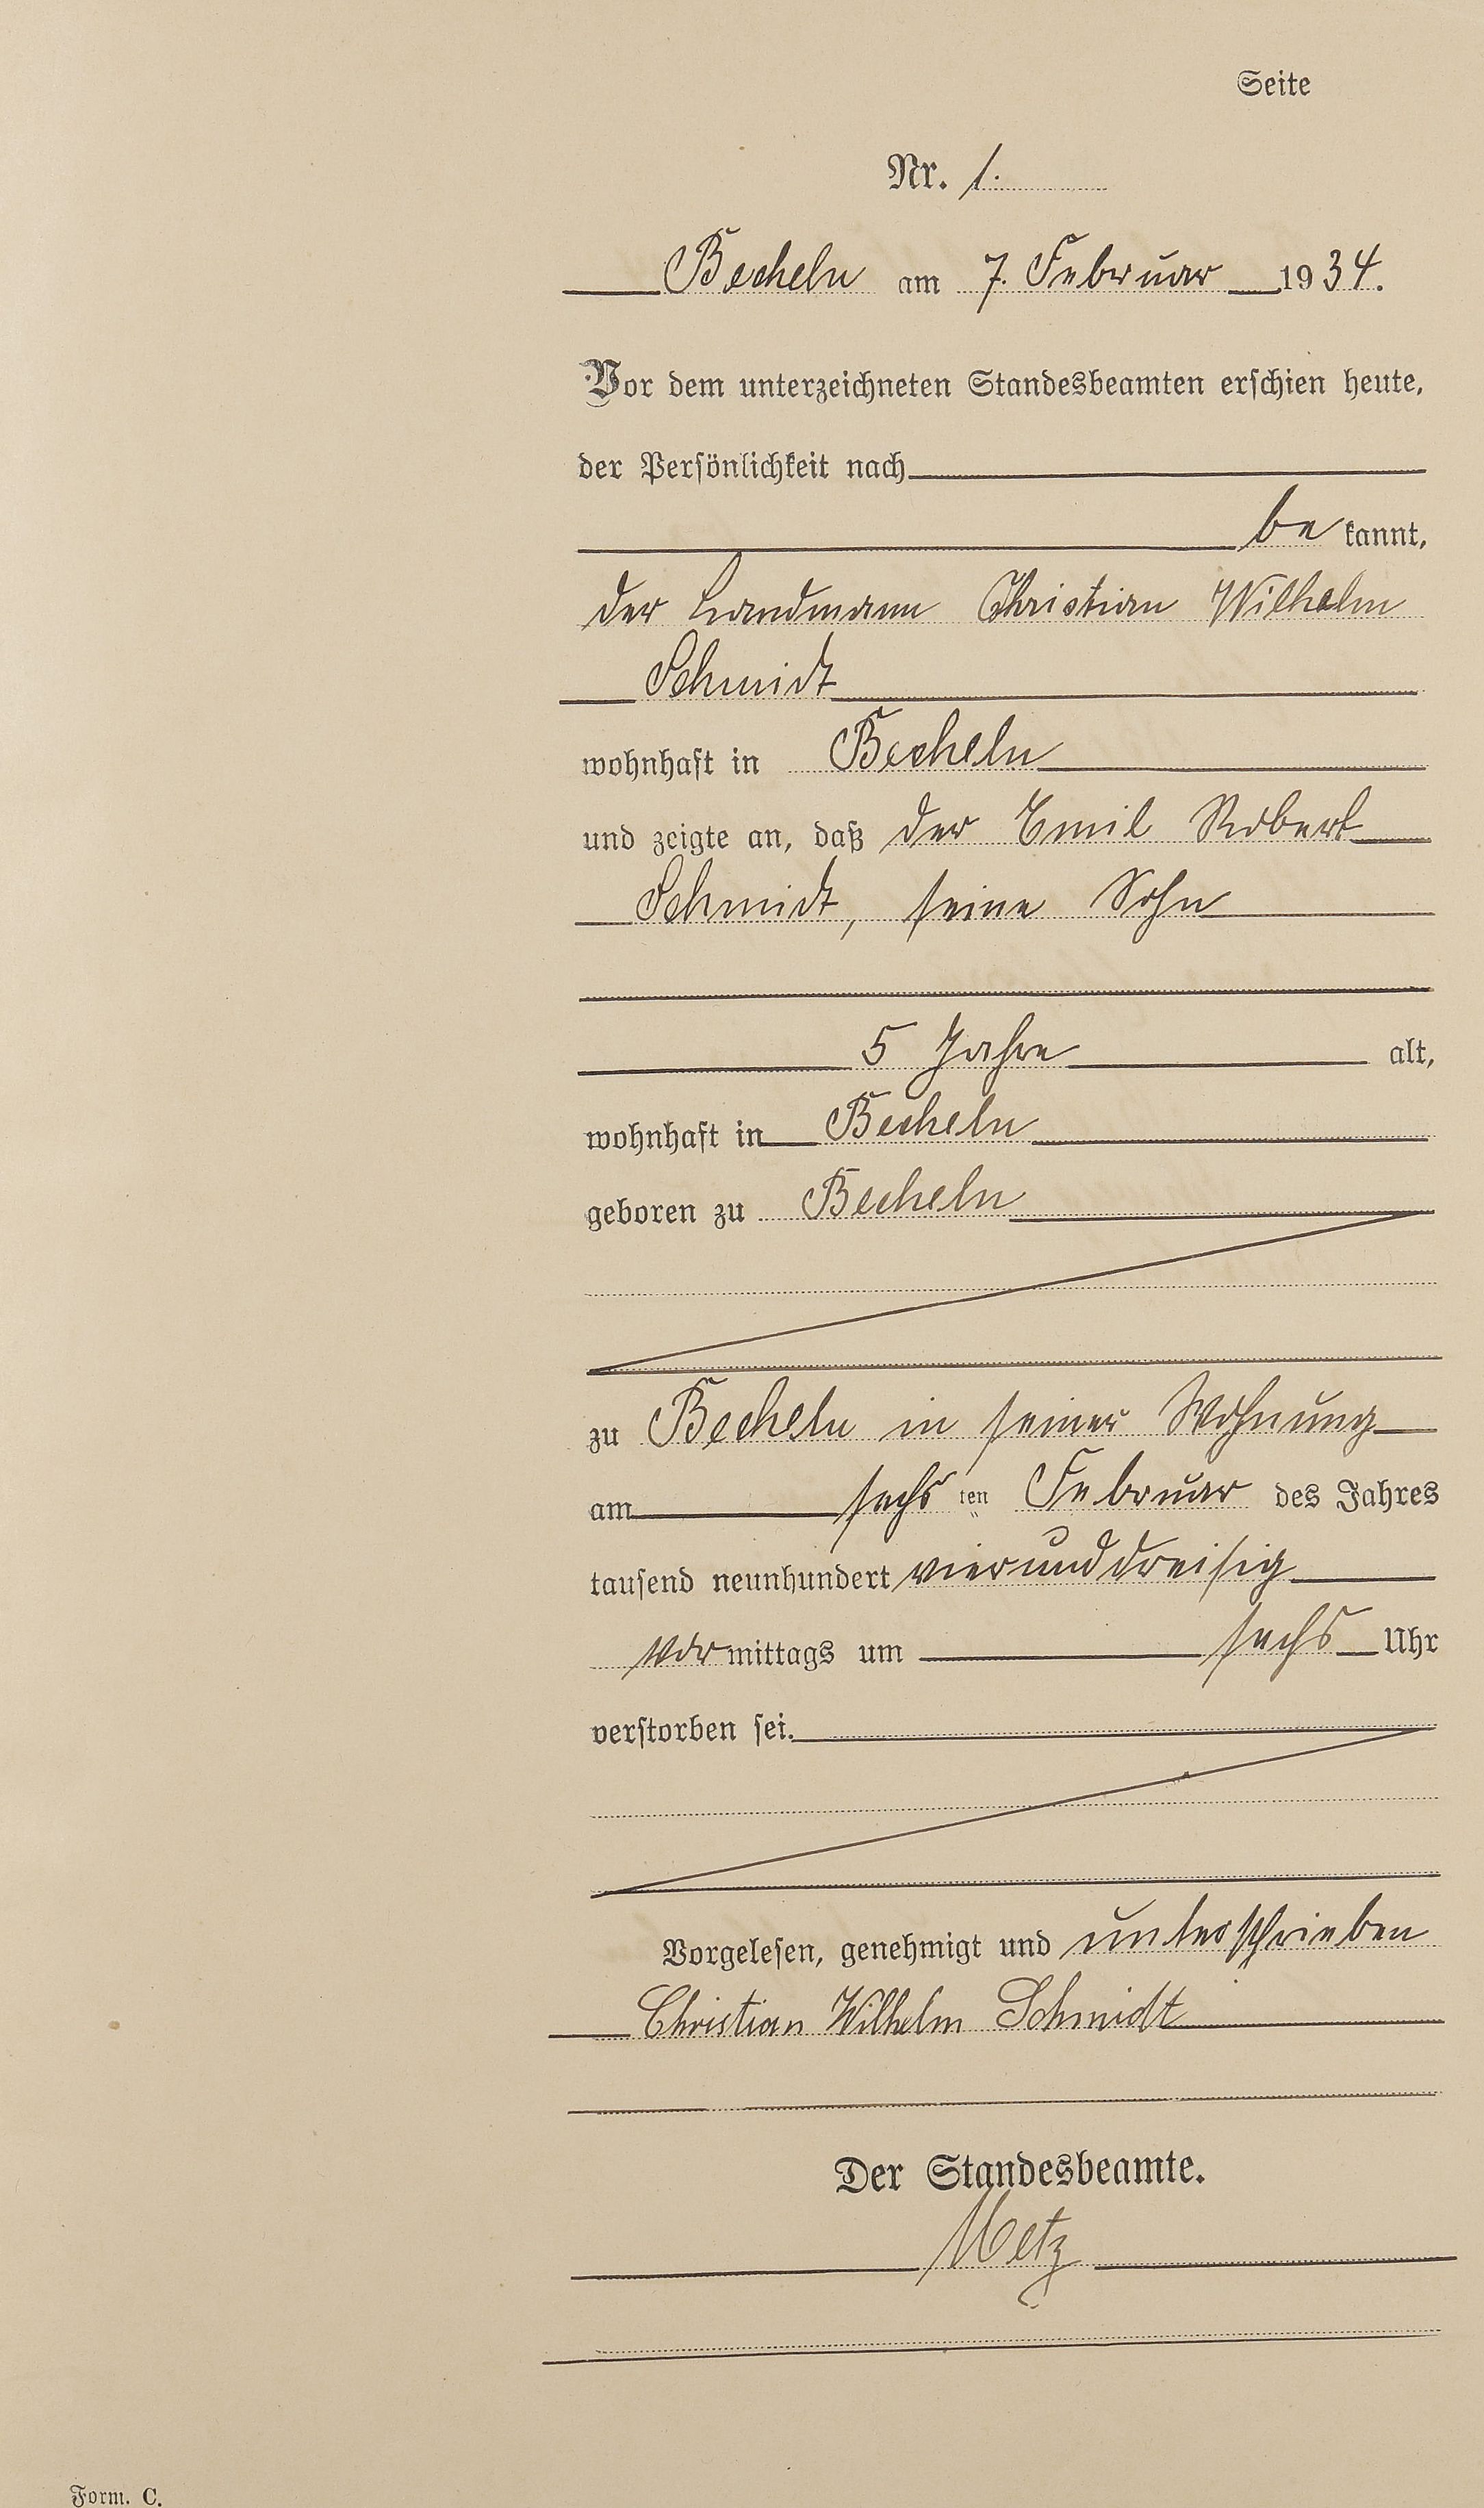 Seite
Nr. 1.
Becheln am 7. Februar 1934.
Vor dem unterzeichneten Standesbeamten erschien heute,
der Persönlichkeit nach
be kannt,
der Landmann Christian Wilhelm
Schmidt
wohnhaft in Becheln
und zeigte an, daß der Emil Robert
Schmidt, seine Sohn
5 Jahre alt,
wohnhaft in Becheln
geboren zu Becheln
zu Becheln in seiner Wohnung
am sechs ten Februar des Jahres
tausend neunhundert vierunddreisig
vor mittags um sechs Uhr
verstorben sei.
Vorgelesen, genehmigt und unterschrieben
Christian Wilhelm Schmidt
Der Standesbeamte.
Metz
Form. C.